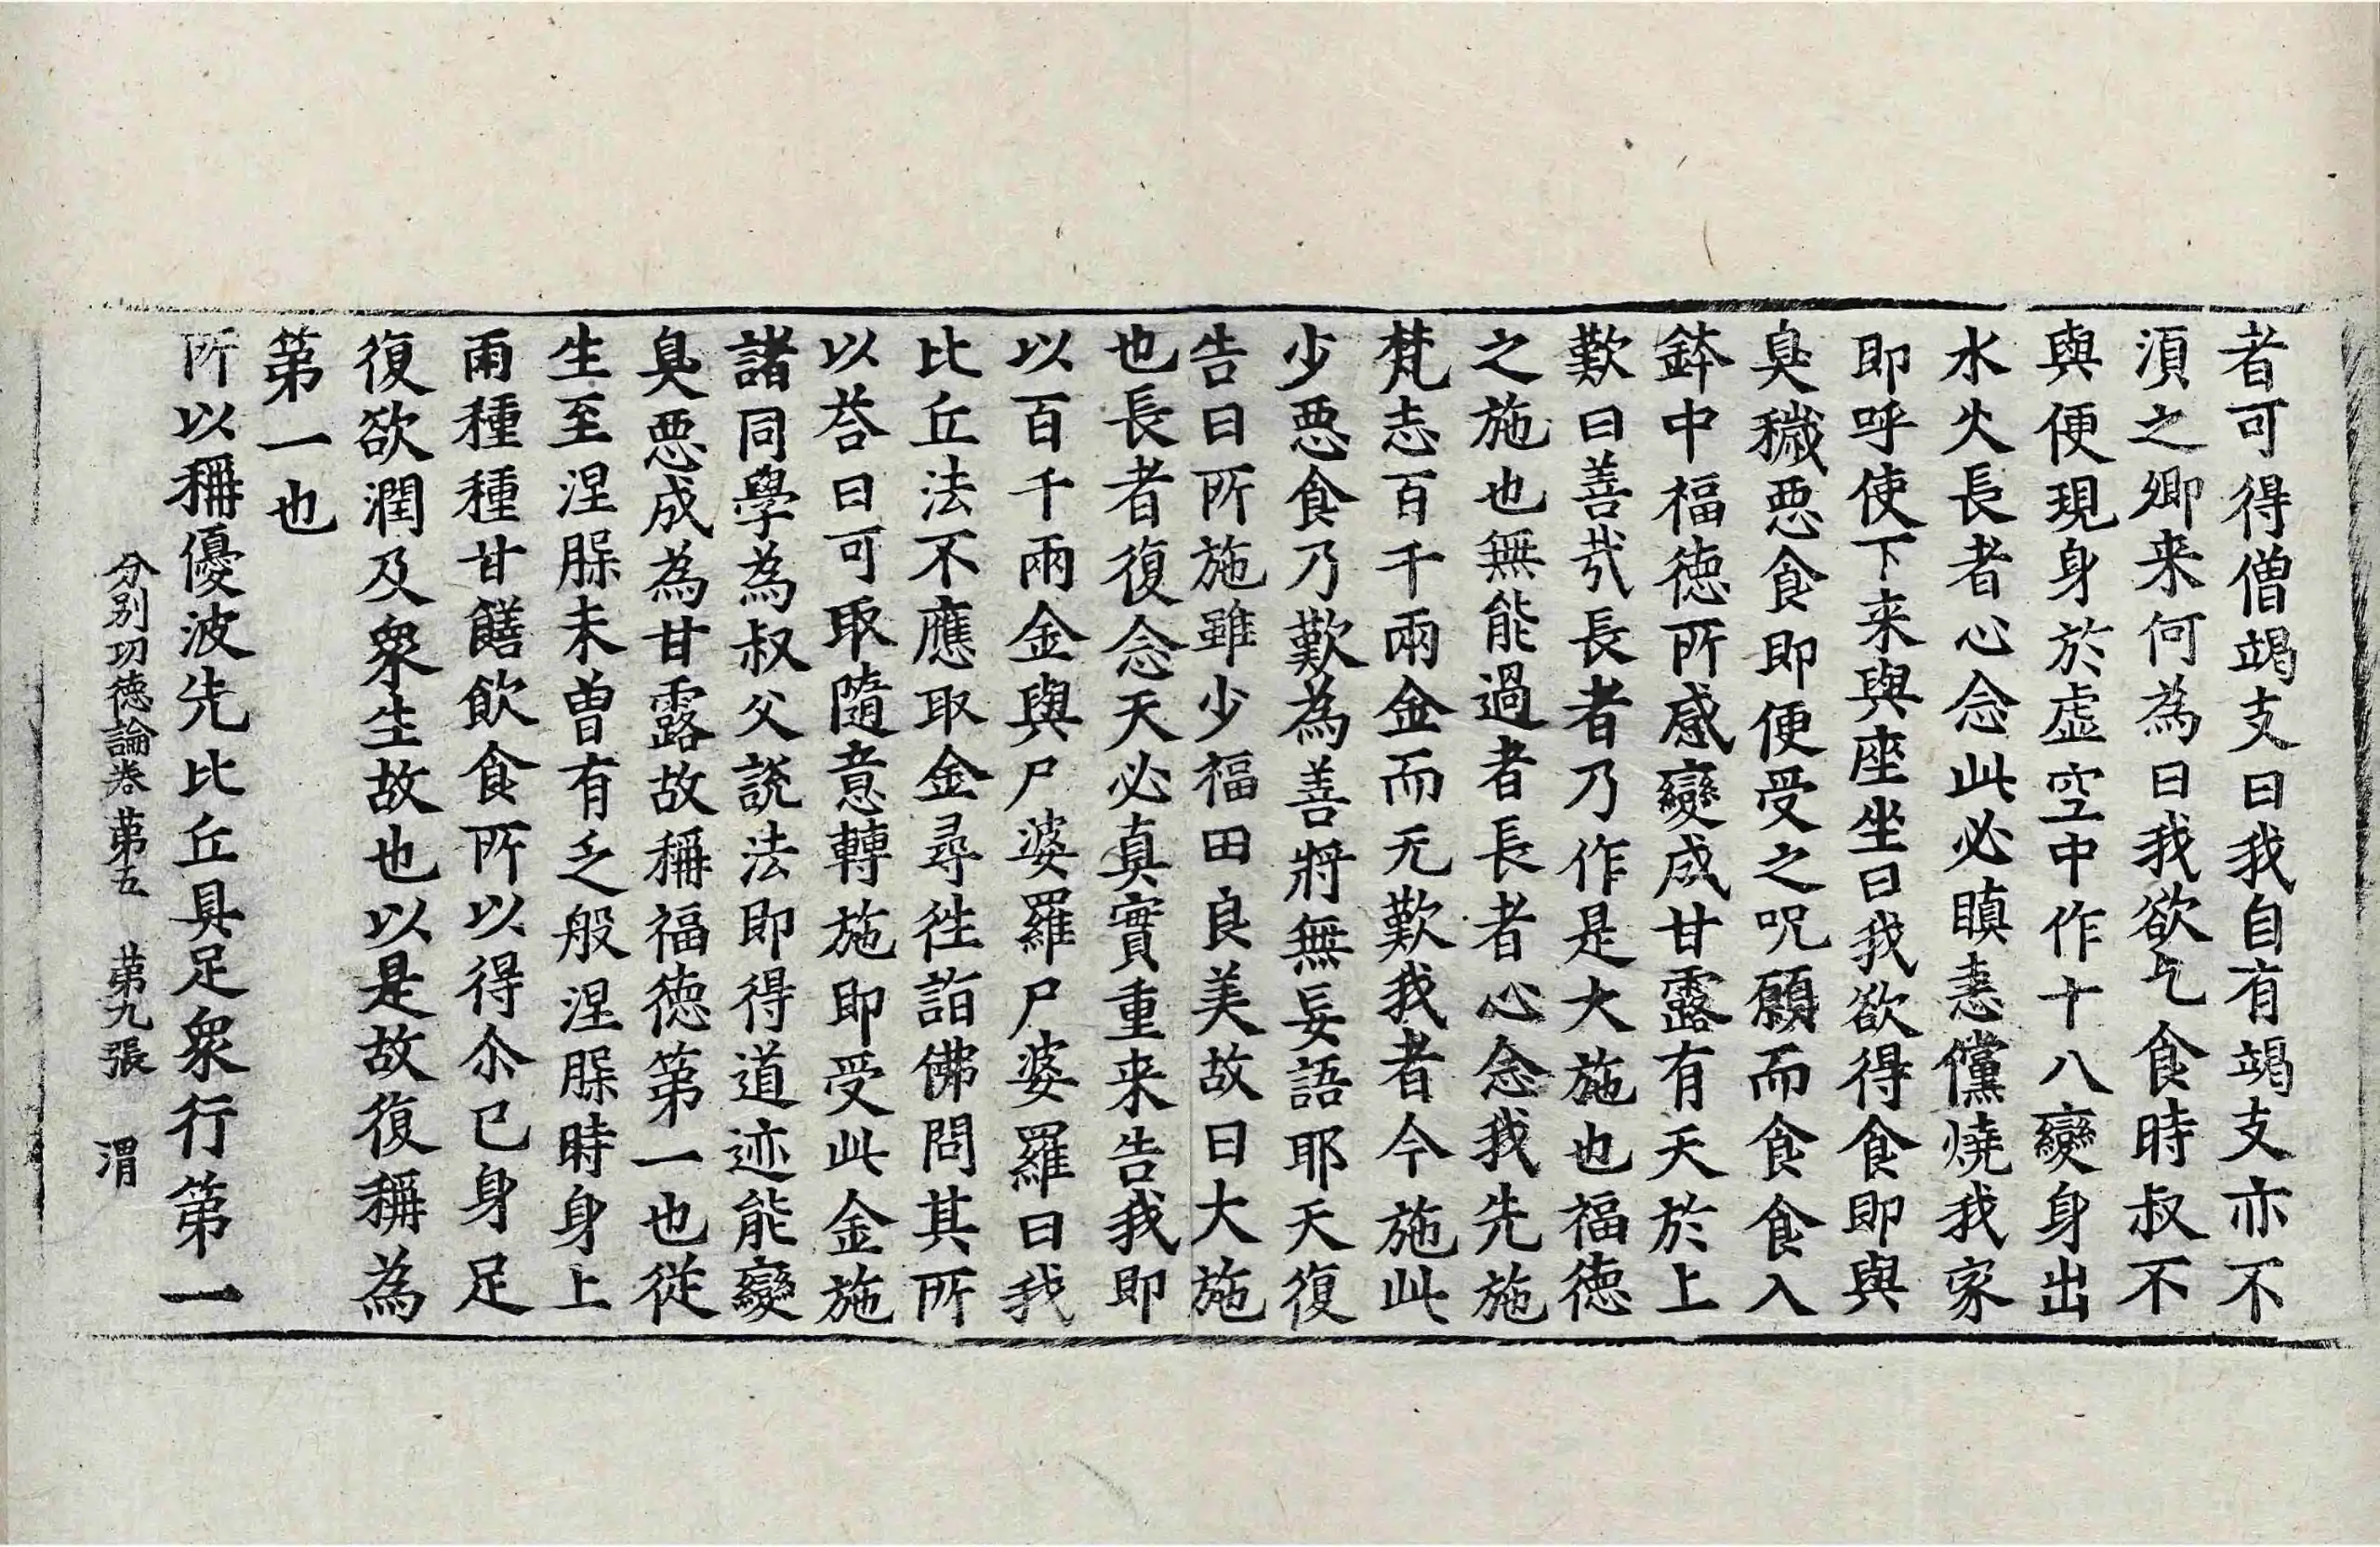 者可得僧竭支曰我自有竭支亦不
湏之卿来何為曰我欲乞食時叔不
與便現身於虛空中作十八變身出
水火長者心念此必瞋恚儻燒我家
即呼使下来與座坐曰我欲得食即與
臭穢惡食即便受之呪願而食食入
鉢中福德所感變成甘露有天於上
歎曰善哉長者乃作是大施也福德
之施也無能過者長者心念我先施
梵志百千兩金而无歎我者今施此
少惡食乃歎為善將無妄語耶天復
告曰所施雖少福田良美故曰大施
也長者復念天必真實重来告我即
以百千兩金與尸婆羅尸婆羅曰我
比丘法不應取金尋往詣佛問其所
以荅曰可取隨意轉施即受此金施
諸同學為叔父說法即得道迹能變
臭惡成為甘露故稱福德第一也從
生至涅槃未曾有乏般涅槃時身上
雨種種甘饍飲食所以得尒已身足
復欲潤及衆生故也以是故復稱為
第一也
所以稱優波先比丘具足衆行第一
分別功德論卷第五 第九張 渭